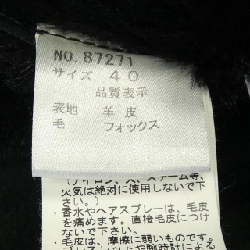 NO. 87271
サイズ 40
品質表示
表地 羊皮
毛 フォックス
火気は絶対に使用しないで下さい。
・香水やヘアスプレーは、毛皮を痛めます。直接毛皮につけないで下さい。
・毛皮は、摩擦に弱いものです。